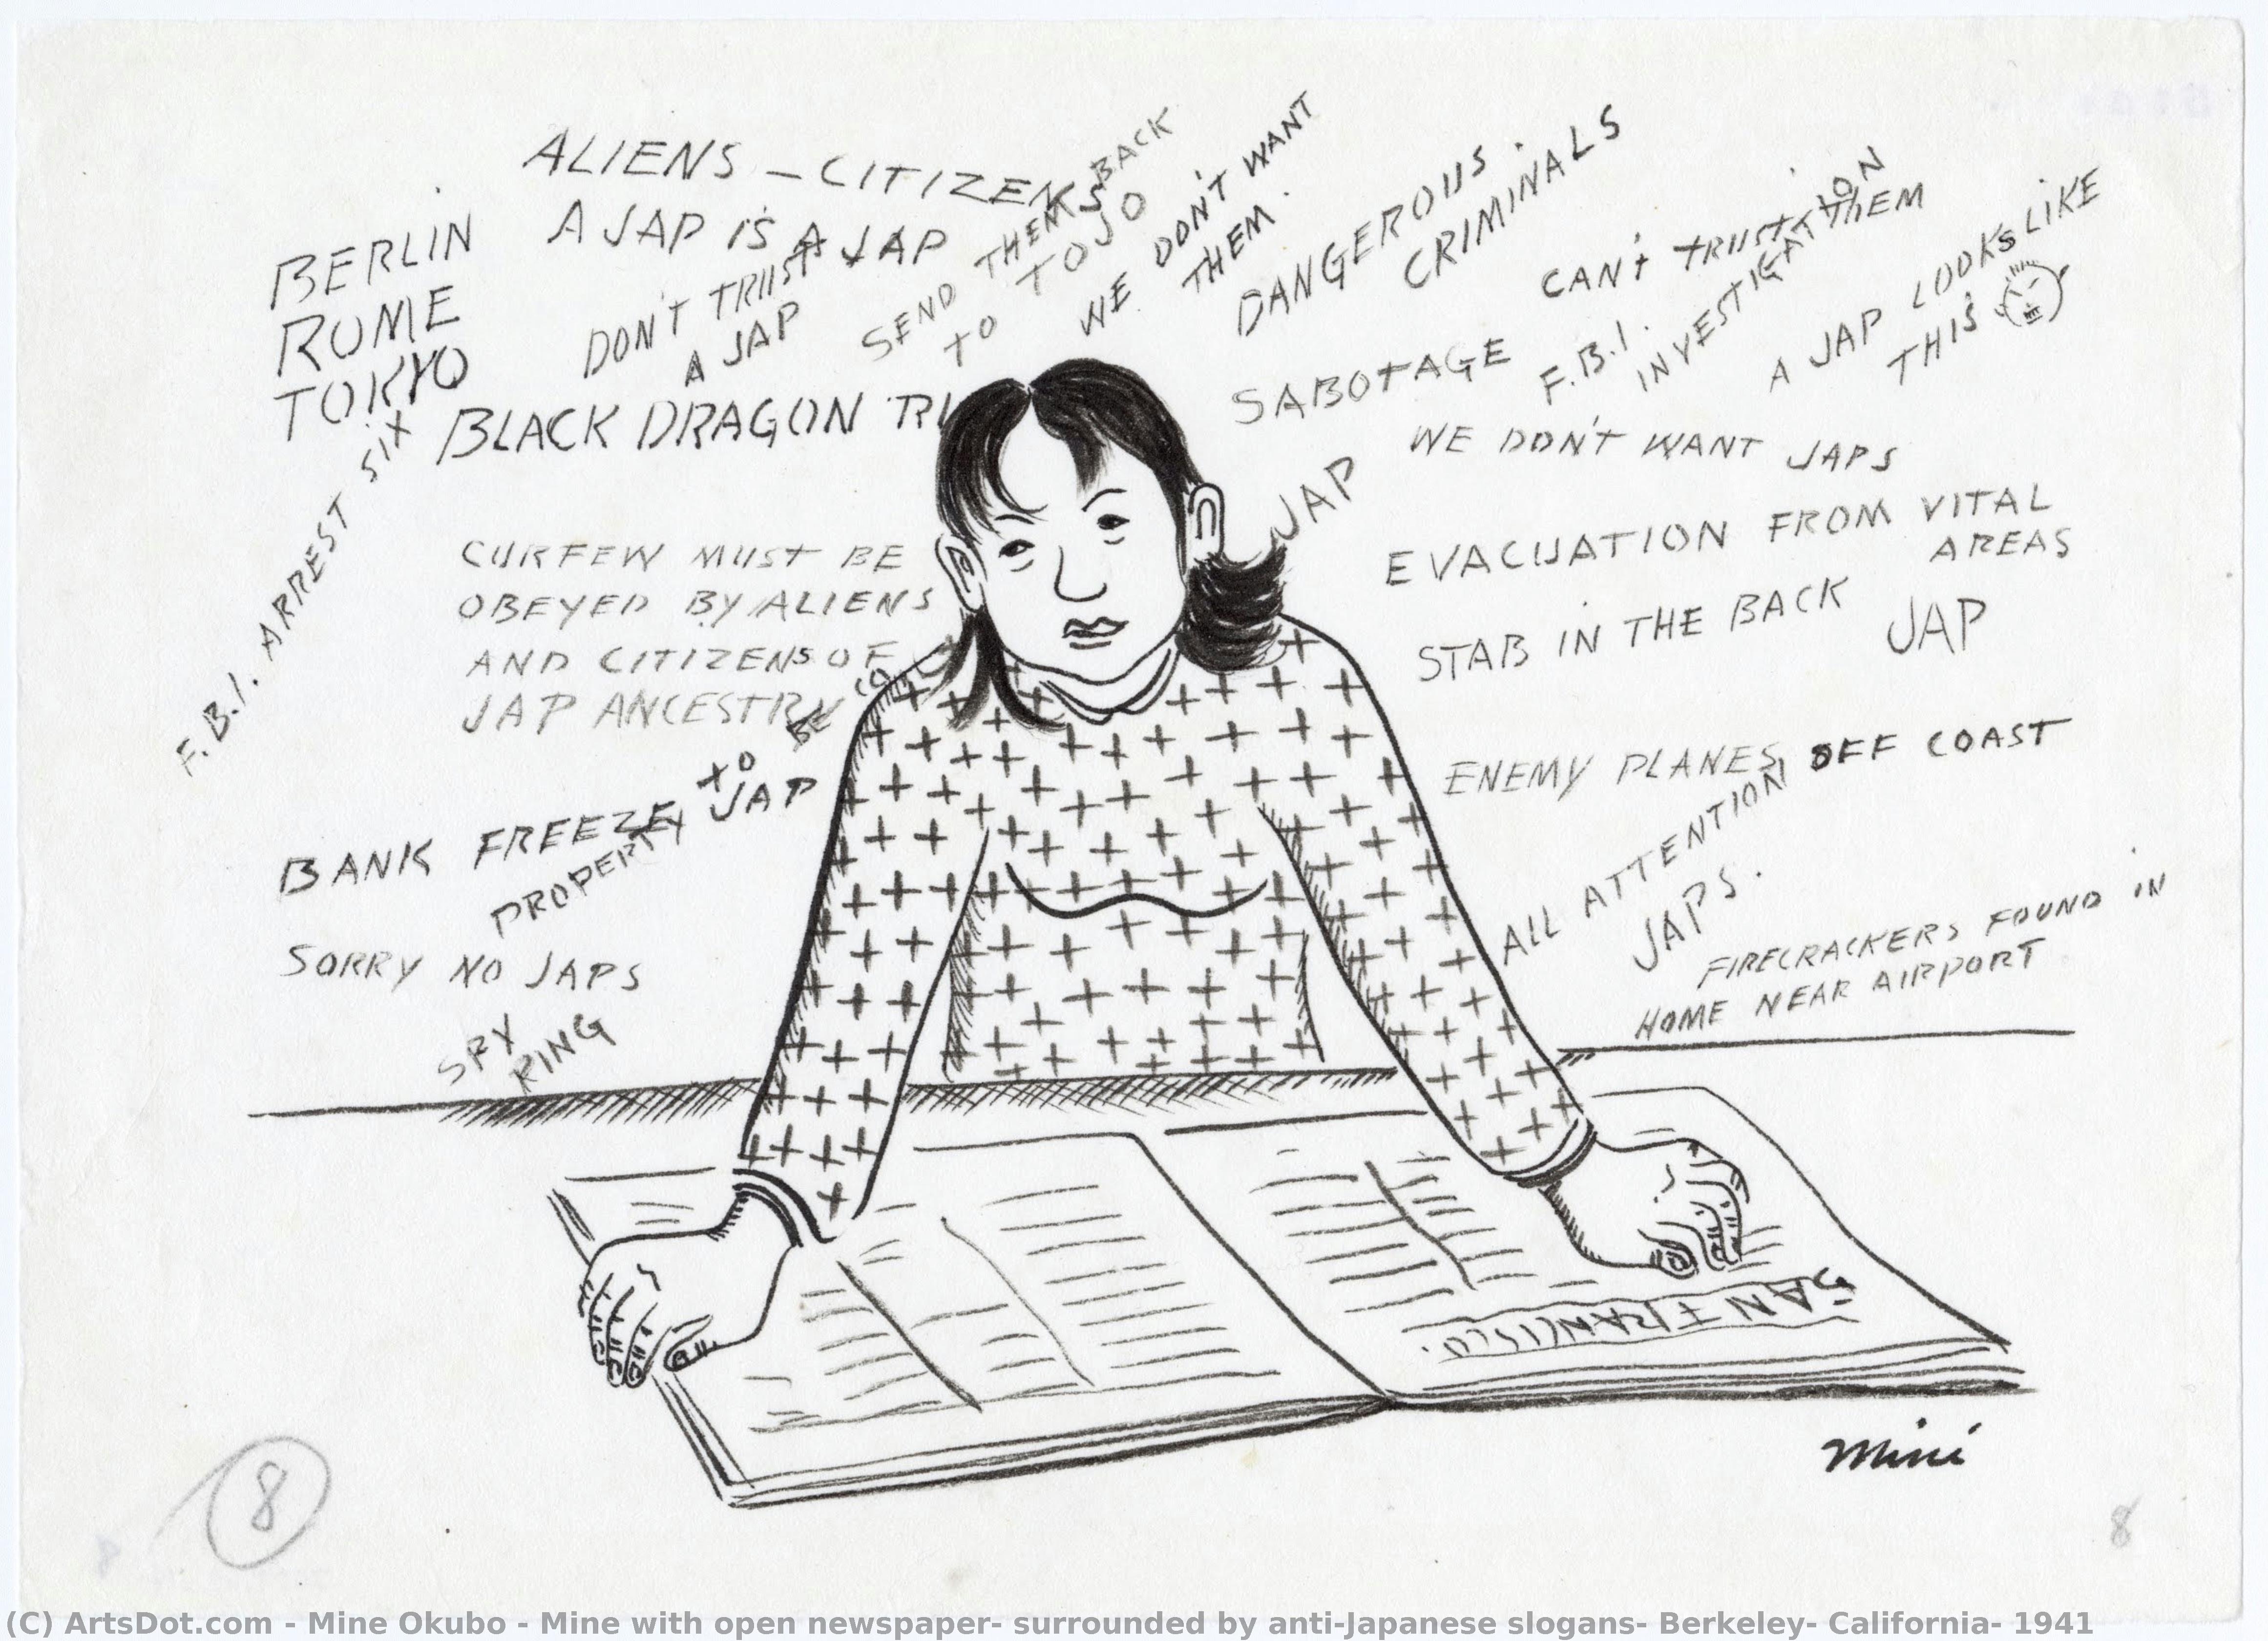 ALIENS - CITIZENS
A JAP IS A JAP
BERLIN
ROME
TOKYO
DON'T TRUST
A JAP
SEND THEM BACK
TO TOJO
WE DON'T WANT
THEM.
DANGEROUS.
CRIMINALS
CAN'T TRUST THEM
F.B.I.
INVESTIGATION
A JAP LOOKS LIKE
THIS
BLACK DRAGON
SABOTAGE
WE DON'T WANT JAPS
F.B.I. ARREST SIX
JAP
CURFEW MUST BE
OBEYED BY ALIENS
AND CITIZENS OF
JAP ANCESTRY
EVACUATION FROM VITAL
AREAS
STAB IN THE BACK
JAP
ENEMY PLANES OFF COAST
BANK FREEZE JAP
PROPERTY TO BE
ALL ATTENTION
JAPS.
SORRY NO JAPS
FIRECRACKERS FOUND IN
HOME NEAR AIRPORT
SPY
RING
SAN FRANCISCO.
Miné
8
8
(C) ArtsDot.com - Mine Okubo - Mine with open newspaper- surrounded by anti-Japanese slogans- Berkeley- California- 1941